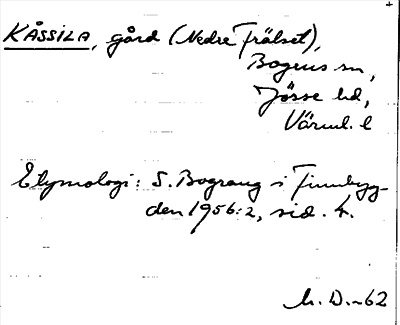 KÅSSILA, gård (Nedre Frälset),
Bogens sn,
Jösse hd,
Värml. l
Etymologi: S. Bograng i Finnbyg-
den 1956:2, sid. 4.
M. D. -62